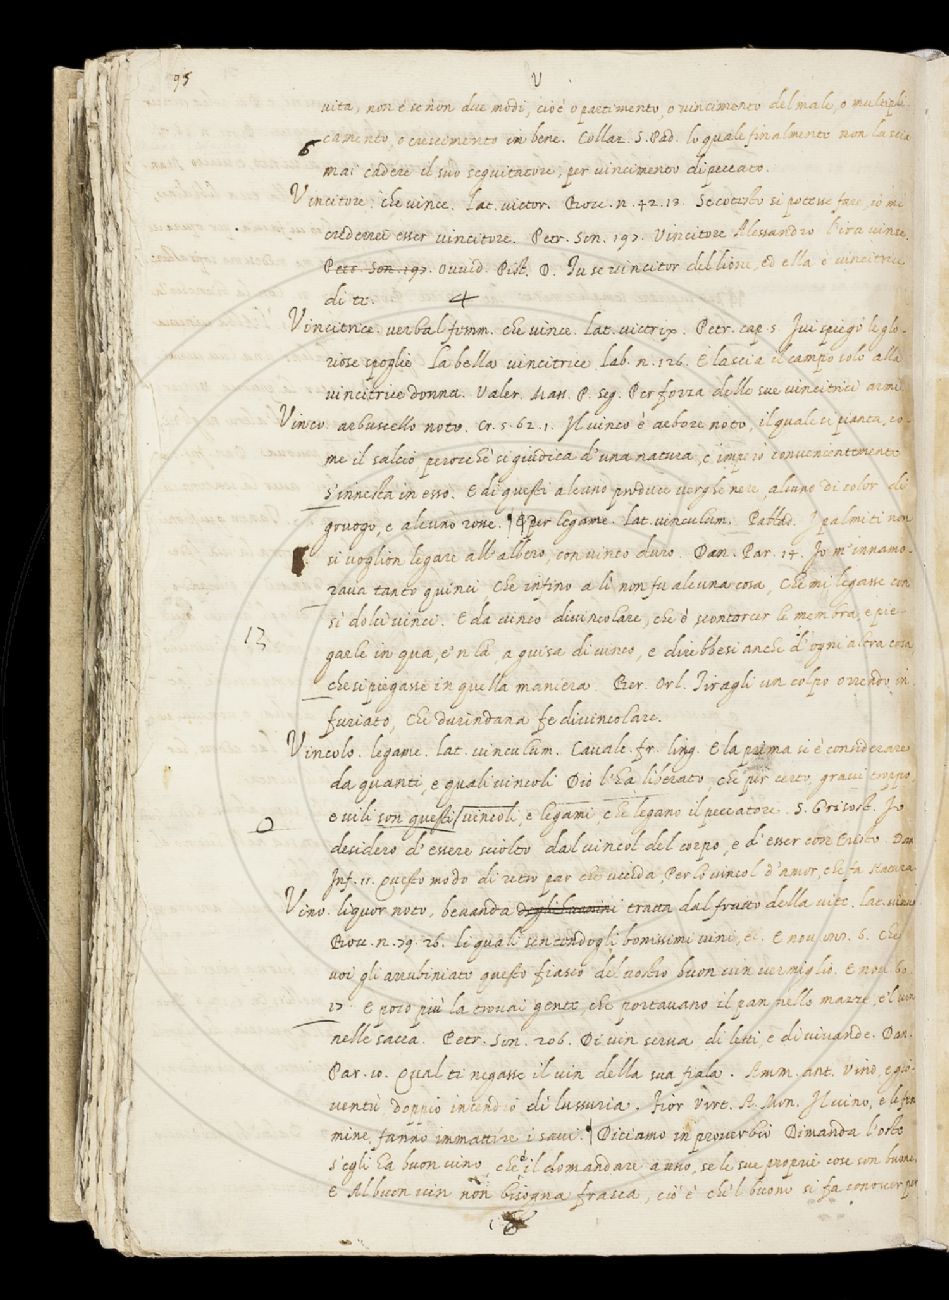 95
V
vita, non è se non due modi, cioè o partimento, o vincimento del male, o multipli-
camento, o crescimento in bene. Collaz. S. Pad. lo quale finalmente non lascia
6
mai cadere il suo seguitatore, per vincimento di peccato.
Vincitore, che vince. Lat. victor. Bocc. n. 42. 12. Se cotesto si potesse fare, io mi
crederei esser vincitore. Petr. Son. 197. Vincitore Alessandro l'ira vinse.
Petr. Son. 197. Ovvid. Pist. D. Tu se vincitor del lione, ed ella è vincitrice
di te. 4
Vincitrice. verbal femm. che vince. Lat. victrix. Petr. cap. 5. Ivi spiegò le glo-
riose spoglie La bella vincitrice Lab. n. 126. E lascia il campo solo alla
vincitrice donna. Valer. Mass. P. Seg. Per forza delle sue vincitrici armi
Vinco. arbuscello noto. Cr. 5. 62. 1. Il vinco è arbore noto, il quale si pianta, co-
me il salcio perocchè si giudica d'una natura, e imperò convenientemente
s'innesta in esso. E di questi alcuno produce verghe nere, alcuno di color di
gruogo, e alcuno rosse. E per legame. Lat. vinculum. Pallad. I palmiti non
si voglion legare all'albero, con vinco duro. Dan. Par. 14. Io m'innamo-
rava tanto quinci Che infino a lì non fu alcuna cosa, Che mi legasse con
sì dolci vinci. E da vinco divincolare, che è scontorcer le membra, e pie-
13
garle in qua, e 'n là, a guisa di vinco, e direbbesi anche d'ogni altra cosa
che si piegasse in quella maniera. Ber. Orl. Tiragli un colpo orrendo in-
furiato, Che durindana fe divincolare.
Vincolo. legame. Lat. vinculum. Cavalc. fr. ling. E la prima si è considerare
da quanti, e quali vincoli Dio l'ha liberato, che per certo, gravi troppo,
e vili son questi vincoli, e legami, che legano il peccatore. S. Grisost. Io
desidero d'essere sciolto dal vincol del corpo, e d'esser con Cristo. Dan
Inf. 11. Questo modo di retro par che uccida, Pur lo vincol d'amor, che fa natura
Vino. liquor noto, bevanda degli huomini tratta dal frutto della vite. Lat. vinum
Bocc. n. 79. 26. li quali sentendogli bonissimi vini, &. E nov. 6. Che
voi gli arrubiniate questo fiasco del vostro buon vin vermiglio. E nov. 60.
17. E poco più là trovai gente, che portavano il pan nelle mazze, e 'l vin
nelle sacca. Petr. Son. 206. Di vin serva di letti, e di vivande. Dan.
Par. 10. Qual ti negasse il vin della sua fiala. Amm. ant. Vino, e gio-
ventù, doppio incendio di lussuria. Fior Virt. A. Mon. Il vino, e le fem
mine, fanno immattire i savi. Diciamo in proverbio Dimanda l'oste
s'egli ha buon vino, che è il domandare a uno, se le sue proprie cose son buone.
E Al buon vin non bisogna frasca, cioè che 'l buono si fa conoscer per